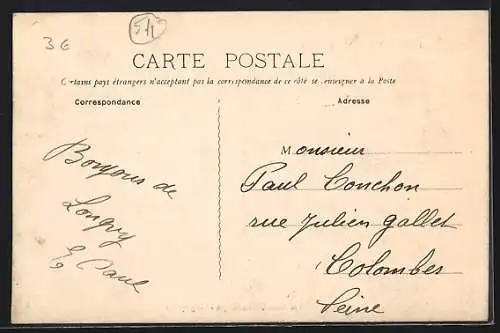 3€
54
CARTE POSTALE
Certains pays étrangers n'acceptant pas la correspondance de ce côté se renseigner à la Poste
Correspondance
Adresse
Bonjour de
Longvy
Paul
Monsieur
Paul Conchon
rue Julien Gallet
Colombes
Seine